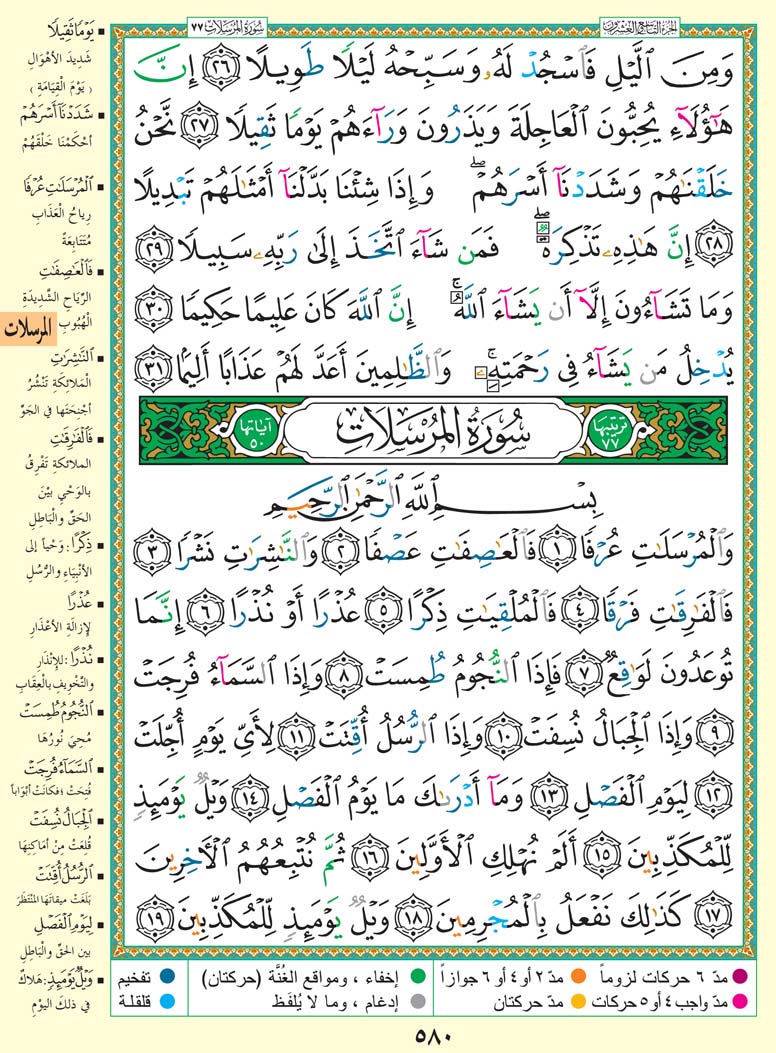 الجزء التاسع والعشرون
سورة المرسلات ٧٧
وَمِنَ الَّيْلِ فَاسْجُدْ لَهُ وَسَبِّحْهُ لَيْلًا طَوِيلًا ٢٦ إِنَّ
هَٰؤُلَاءِ يُحِبُّونَ الْعَاجِلَةَ وَيَذَرُونَ وَرَاءَهُمْ يَوْمًا ثَقِيلًا ٢٧ نَّحْنُ
خَلَقْنَاهُمْ وَشَدَدْنَا أَسْرَهُمْ ۖ وَإِذَا شِئْنَا بَدَّلْنَا أَمْثَالَهُمْ تَبْدِيلًا
٢٨ إِنَّ هَٰذِهِ تَذْكِرَةٌ ۖ فَمَن شَاءَ اتَّخَذَ إِلَىٰ رَبِّهِ سَبِيلًا ٢٩
وَمَا تَشَاءُونَ إِلَّا أَن يَشَاءَ اللَّهُ ۚ إِنَّ اللَّهَ كَانَ عَلِيمًا حَكِيمًا ٣٠
يُدْخِلُ مَن يَشَاءُ فِي رَحْمَتِهِ ۚ وَالظَّالِمِينَ أَعَدَّ لَهُمْ عَذَابًا أَلِيمًا ٣١
ترتيبها ٧٧
سُورَةُ الْمُرْسَلَاتِ
آياتها ٥٠
بِسْمِ اللَّهِ الرَّحْمَٰنِ الرَّحِيمِ
وَالْمُرْسَلَاتِ عُرْفًا ١ فَالْعَاصِفَاتِ عَصْفًا ٢ وَالنَّاشِرَاتِ نَشْرًا ٣
فَالْفَارِقَاتِ فَرْقًا ٤ فَالْمُلْقِيَاتِ ذِكْرًا ٥ عُذْرًا أَوْ نُذْرًا ٦ إِنَّمَا
تُوعَدُونَ لَوَاقِعٌ ٧ فَإِذَا النُّجُومُ طُمِسَتْ ٨ وَإِذَا السَّمَاءُ فُرِجَتْ
٩ وَإِذَا الْجِبَالُ نُسِفَتْ ١٠ وَإِذَا الرُّسُلُ أُقِّتَتْ ١١ لِأَيِّ يَوْمٍ أُجِّلَتْ
١٢ لِيَوْمِ الْفَصْلِ ١٣ وَمَا أَدْرَاكَ مَا يَوْمُ الْفَصْلِ ١٤ وَيْلٌ يَوْمَئِذٍ
لِّلْمُكَذِّبِينَ ١٥ أَلَمْ نُهْلِكِ الْأَوَّلِينَ ١٦ ثُمَّ نُتْبِعُهُمُ الْآخِرِينَ
١٧ كَذَٰلِكَ نَفْعَلُ بِالْمُجْرِمِينَ ١٨ وَيْلٌ يَوْمَئِذٍ لِّلْمُكَذِّبِينَ ١٩
يَوْمًا ثَقِيلًا
شَدِيدَ الأَهْوَالِ
( يَوْمَ الْقِيَامَةِ )
شَدَدْنَا أَسْرَهُمْ
أَحْكَمْنَا خَلْقَهُمْ
الْمُرْسَلَاتِ عُرْفًا
رِيَاحُ الْعَذَابِ
مُتَتَابِعَةً
فَالْعَاصِفَاتِ
الرِّيَاحِ الشَّدِيدَةِ
الْهُبُوبِ
النَّاشِرَاتِ
الْمَلَائِكَةِ تَنْشُرُ
أَجْنِحَتَهَا فِي الْجَوِّ
فَالْفَارِقَاتِ
الملائكةِ تَفْرِقُ
بِالوَحْيِ بَيْنَ
الحَقِّ والْبَاطِلِ
ذِكْرًا : وَحْياً إلى
الأَنْبِيَاءِ وَالرُّسُلِ
عُذْرًا
لِإِزَالَةِ الأَعْذَارِ
نُذْرًا : لِلإِنْذَارِ
والتَّخْوِيفِ بِالْعِقَابِ
النُّجُومُ طُمِسَتْ
مُحِيَ نُورُهَا
السَّمَاءُ فُرِجَتْ
فُتِحَتْ ؛ فَكَانَتْ أَبْوَاباً
الْجِبَالُ نُسِفَتْ
قُلِعَتْ مِنْ أَمَاكِنِهَا
الرُّسُلُ أُقِّتَتْ
بَلَغَتْ مِيقَاتَهَا المُنْتَظَر
لِيَوْمِ الْفَصْلِ
بين الحَقِّ والْبَاطِلِ
وَيْلٌ يَوْمَئِذٍ : هَلَاكٌ
في ذلكَ اليَوْمِ
المرسلات
مدّ ٦ حركات لزوماً
مدّ ٢ أو ٤ أو ٦ جوازاً
إخفاء ، ومواقع الغُنَّة (حركتان)
تفخيم
مدّ واجب ٤ أو ٥ حركات
مدّ حركتان
إدغام ، وما لا يُلفَظ
قلقلة
٥٨٠